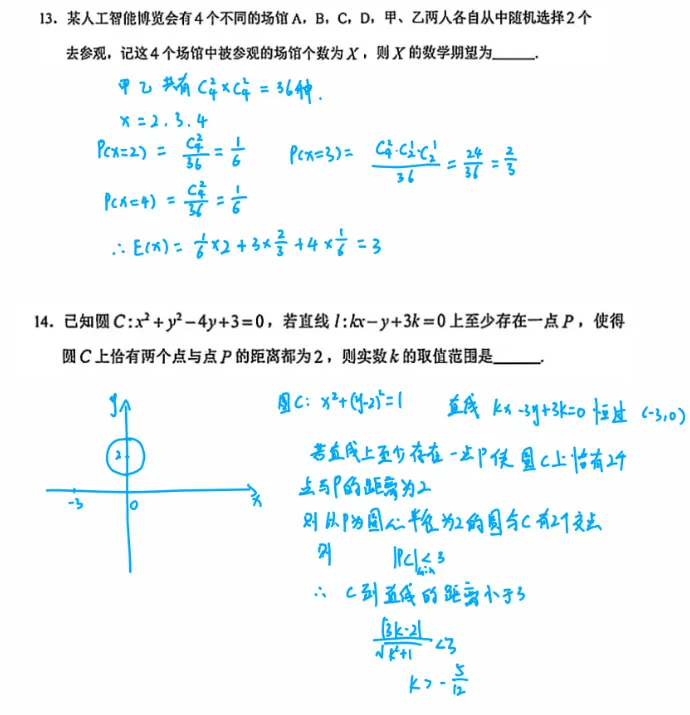 13. 某人工智能博览会有4个不同的场馆A，B，C，D，甲、乙两人各自从中随机选择2个
去参观，记这4个场馆中被参观的场馆个数为X，则X的数学期望为______.
甲乙共有 C₄²×C₄² = 36种.
x = 2.3.4
P(x=2) = C₄²/36 = 1/6 P(x=3) = C₄²·C₂¹·C₂¹/36 = 24/36 = 2/3
P(x=4) = C₄²/36 = 1/6
∴ E(x) = 1/6×2+3×2/3+4×1/6 = 3
14. 已知圆C:x²+y²−4y+3=0，若直线l:kx−y+3k=0上至少存在一点P，使得
圆C上恰有两个点与点P的距离都为2，则实数k的取值范围是______.
圆C: x²+(y-2)²=1 直线 kx-3y+3k=0 恒过 (-3,0)
y
2
-3 0 x
若直线上至少存在一点P使圆C上恰有2个
点与P的距离为2
则以P为圆心半径为2的圆与C有2个交点
则 |PC|min<3
∴ C到直线的距离小于3
|3k-2|/√(k²+1) <3
k>-5/12